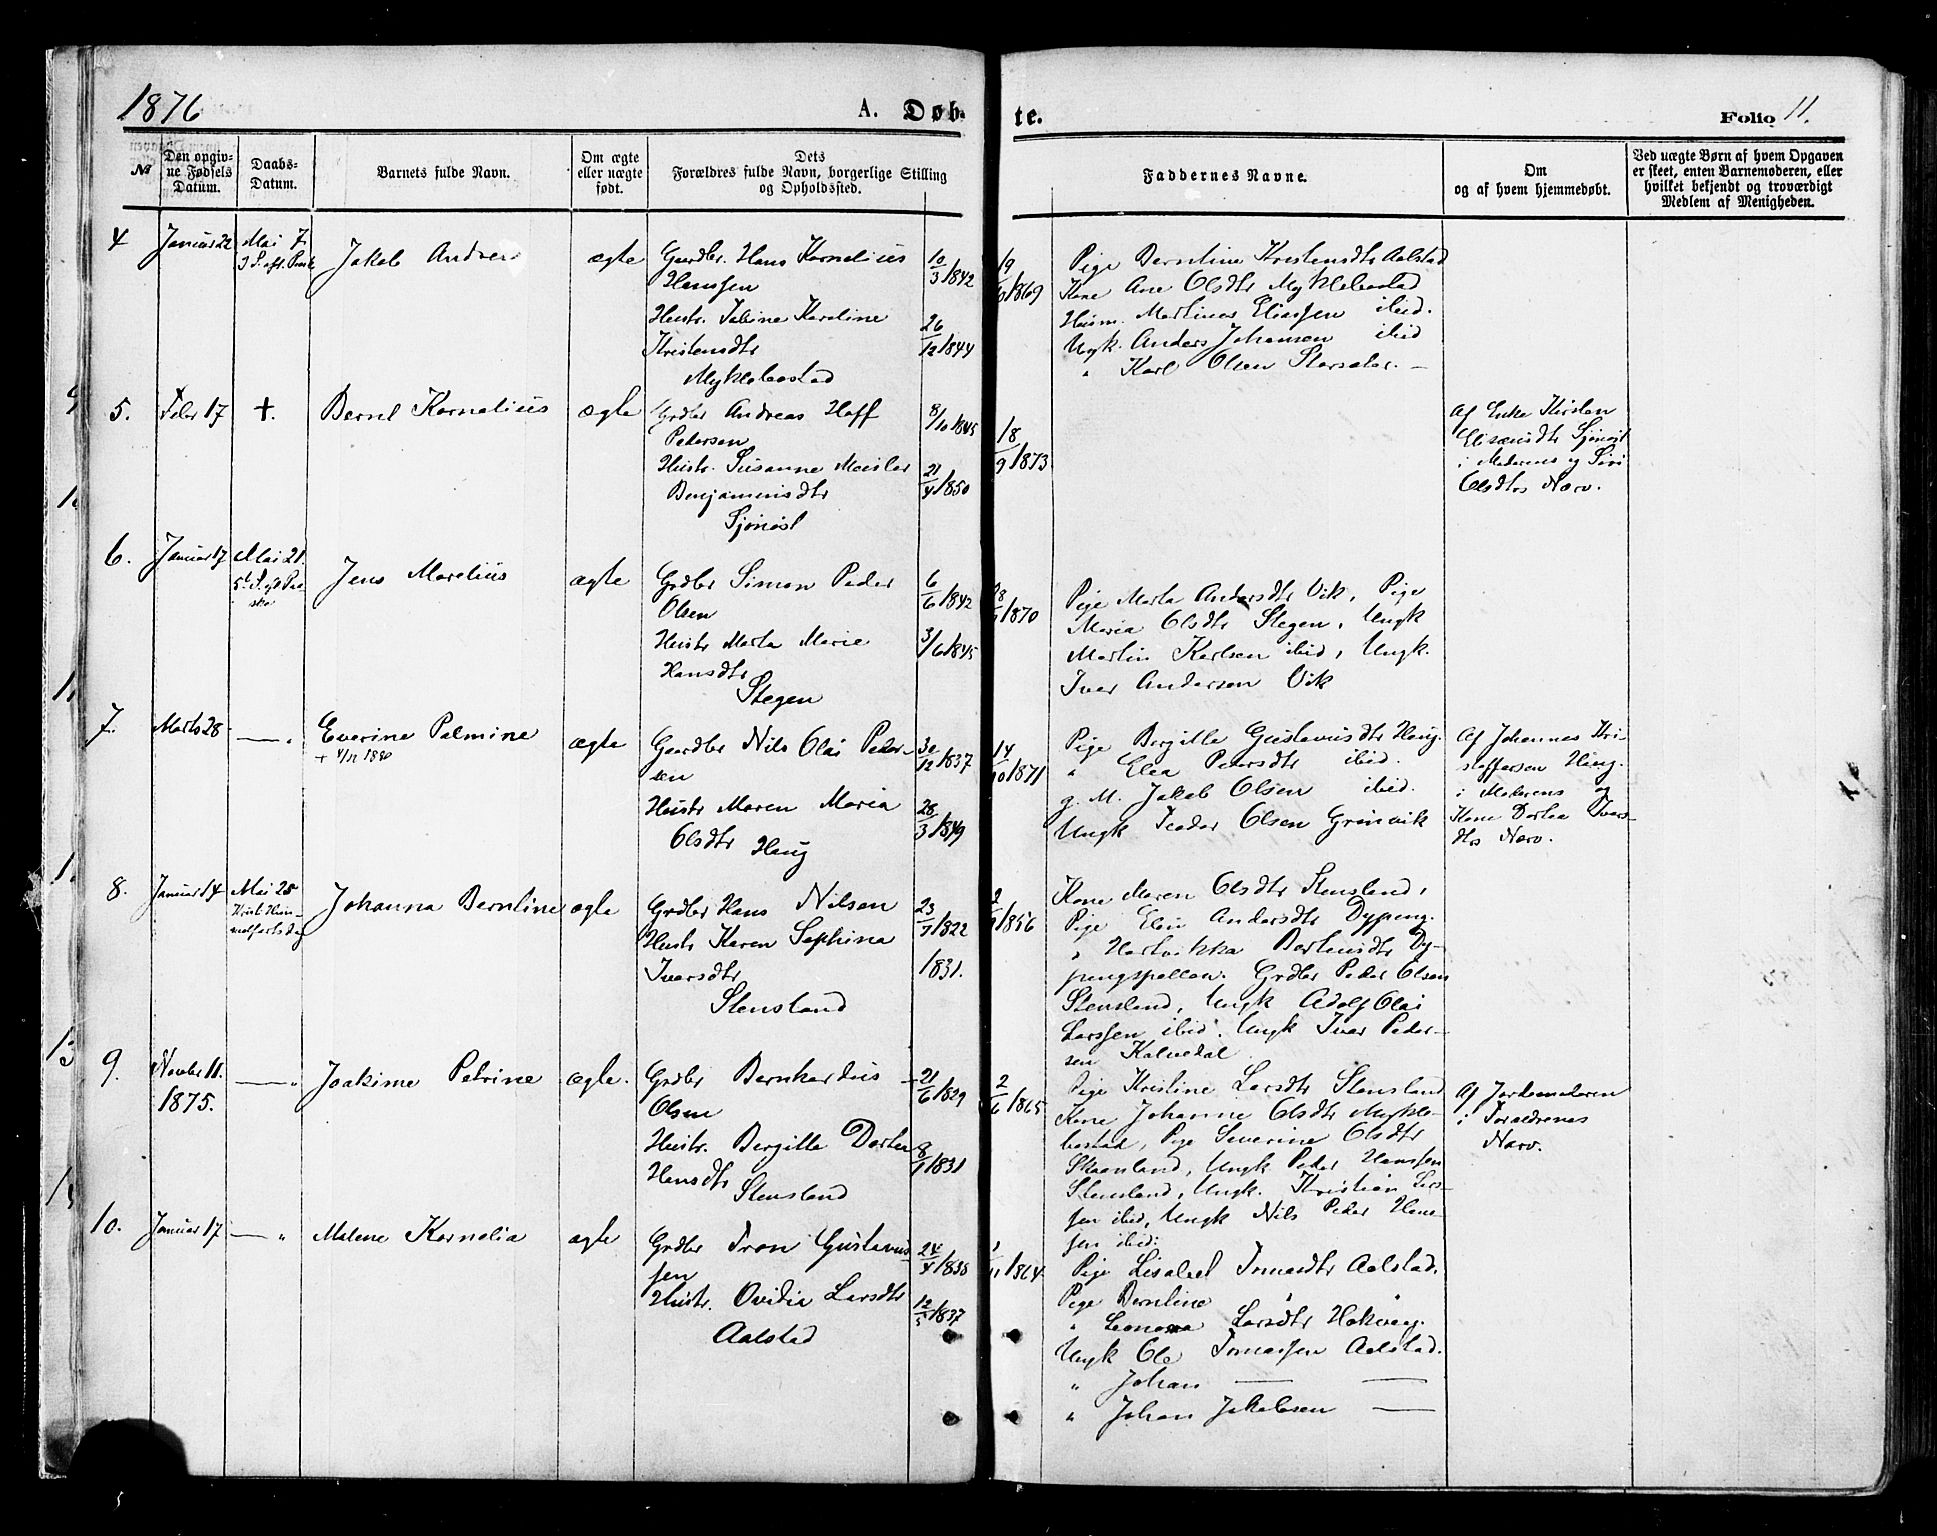 1876
A. Døb-
te.
Folio 11.
№
Den opgiv-
ne Fødsels
Datum.
Daabs-
Datum.
Barnets fulde Navn.
Om ægte
eller uægte
født.
Dets
Forældres fulde Navn, borgerlige Stilling
og Opholdssted.
Faddernes Navne.
Om
og af hvem hjemmedøbt.
Ved uægte Børn af hvem Opgaven
er skeet, enten Barnemoderen, eller
hvilket bekjendt og troværdigt
Medlem af Menigheden.
4
Januar 22
Mai 7.
3 S. eft. Paask
Jakob Andreas
ægte
Gardbr. Hans Kornelius
Hanssen
10/3 1842
Hustr. Jakine Karoline
Kristensdtr
26/12 1844
Myklebostad
19
1869
Pige Berntine Kristensdtr Aalstad
Kone Ane Olsdtr Myklebostad
Husm. Martines Eliassen ibid.
Ungk. Anders Johansen ibid
" Karl Olsen Storsater. –
5.
Febr 17
+.
Bernt Kornelius
ægte
Grdbr Andreas Hoff
Pedersen
8/10 1845
Hustr. Susanne
Benjaminsdtr
21/4 1850
Sjønøst
18/9 1873
Af Enke Kirsten
Elisæusdtr Sjønøst
i Moderens og Siri
Olsdtrs Nærv.
6.
Januar 17
Mai 21.
5t. S. eft Paa-
ske
Jens Marelius
ægte
Grdbr Simon Peder
Olsen
6/6 1842
Hustr Marta Marie
Hansdtr
3/6 1845
Stegen
1870
Pige Marta Andersdtr Vik, Pige
Maria Olsdtr Stegen, Ungk
Martin Karlsen ibid, Ungk.
Iver Andersen Vik
7.
Marts 28
— "
Everine Palmine
+ 4/12 1880
ægte
Gaardbr Nils Olai Peder-
sen
30/12 1837
Hustr Maren Maria
Olsdtr Haug
28/3 1849
14/10 1871
Pige Birgitte Gustavusdtr Haug.
" Elea Petersdtr ibid.
g. M. Jakob Olsen ibid.
Ungk Teodor Olsen Grønvik
Af Johannes Kri-
stoffersen Haug.
i Moderens og
Kone Dortea Ivars-
dtrs Nærv.
8.
Januar 14
Mai 25
Krist. Him-
melfartsdag
Johanna Berntine
ægte
Grdbr Hans Nilsen
23/7 1822
Hustr Karen Sephina
Ivarsdtr
1831.
Stensland
1856
Kone Maren Olsdtr Stensland,
Pige Elen Andersdtr Dypeng.
" Hartvikka Bertensdtr Dy-
pengspollen. Grdbr Peder Olsen
Stensland, Ungk Adolf Olai
Larssen ibid. Ungk Ivar Peder-
sen Kalvedal
9.
Novber 11.
1875.
— "
Joakime Petrine
ægte.
Grdbr Bernhardus
Olsen
21/6 1829
Hustr. Bergitte Dortea
Hansdtr
8/1 1831
Stensland
2/6 1865
Pige Kristine Larsdtr Stensland
Kone Johanne Olsdtr Mykle-
bostad, Pige Severine Olsdtr
Skaanland, Ungk Peder Hanssen
Stensland, Ungk. Kristian Lars-
sen ibid, Ungk Nils Peder Hans-
sen ibid.
Af Jordemoderen
i Foraldrenes
Nærv.
10.
Januar 17
— "
Malene Kornelia
ægte
Grdbr Tron Gustavus-
sen
24/4 1838
Hustr. Ovidia Larsdtr
12/5 1837
Aalstad
1864
Pige Lisabet Tomasdtr Aalstad.
Pige Berntine " "
" Leonora Larsdtr Hakvåg.
Ungk Ole Tomassen Aalstad.
" Johan — —
" Johan Jakobsen —